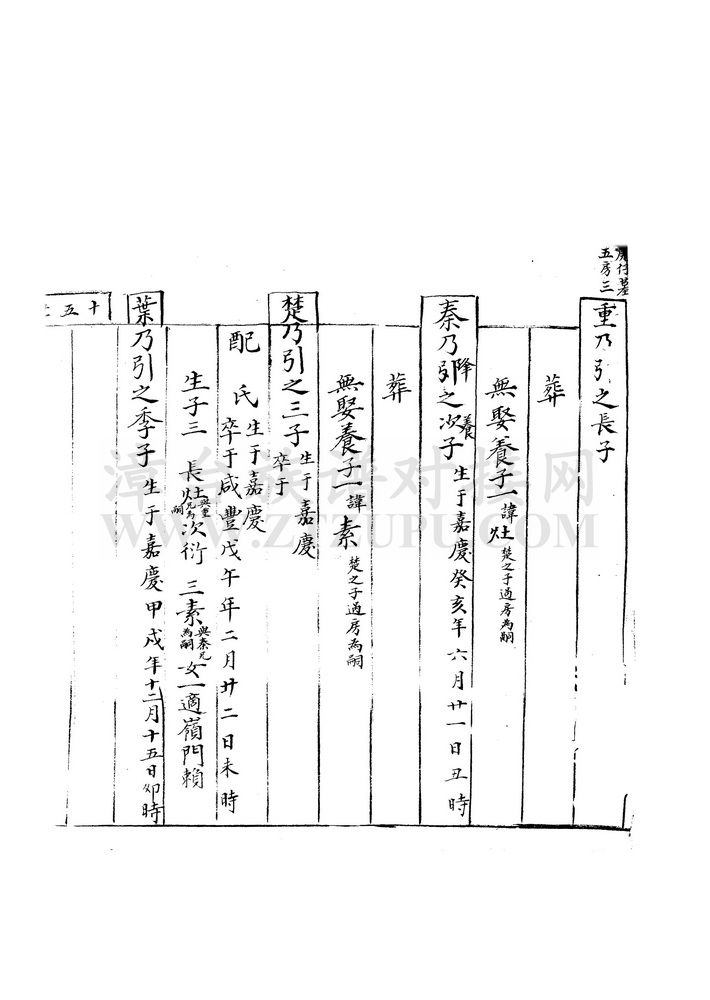 五房三
房仔墓
重乃引之長子
葬
無娶養子一諱灶楚之子過房為嗣
秦乃引之次子生于嘉慶癸亥年六月廿一日丑時
降養
葬
無娶養子一諱素楚之子過房為嗣
楚乃引之三子生于嘉慶
卒于
配 氏生于嘉慶
卒于咸豐戊午年二月廿二日未時
生子三 長灶與重兄為嗣次衍 三素與秦兄為嗣女一適嶺門賴
葉乃引之季子生于嘉慶甲戌年十二月十五日卯時
十五
漳台族谱对接网
WWW.ZTZUPU.COM